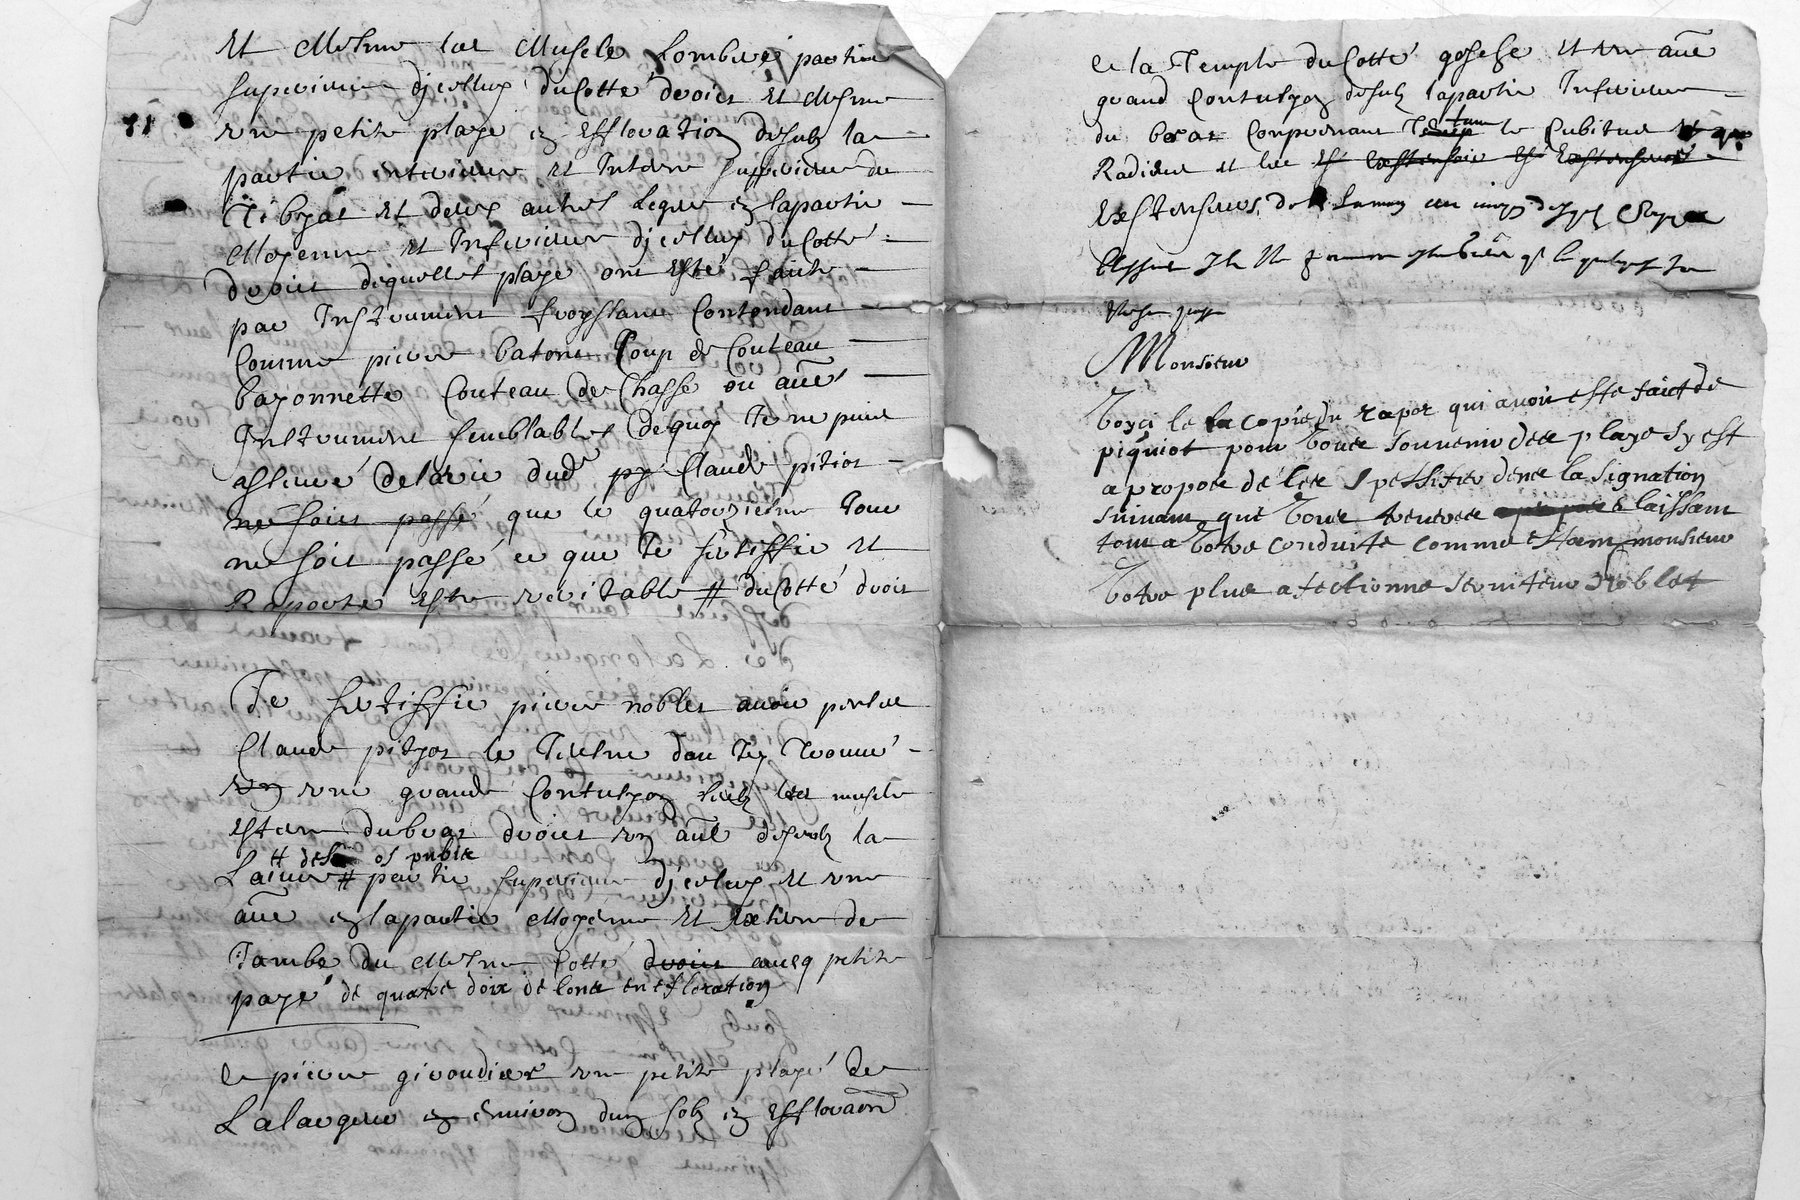 et mesme les musele lombré partie
superieure djcelluy du Cotté droict et mesme
une petite playe en effloration desub la
partie interieure et Interne superieure du
Tibyas et deux autres legere en la partie
moyenne et Inferieure djcelluy du Cotté
droict dequelles playe ont esté faicte
par Instrument froyssant Contondant
Comme pierre batons Coup de Couteau
bayonnette Couteau de Chasse ou aûes
Instrument semblables dequoy Je ne puise
asseuré de la vie dud py Claude pitios
ne soict passé que le quatorziesme Jour
ne soit passé ce que Je sertiffie et
Raporte estre veritable # du Cotté droict
Je sertiffie pierre nobles avoir pensé
Claude pityos le Tiesme don Jey Trouvé
un une grande Contusyon sub les musele
estern du bras droict un aûe desub la
# des os pubie
Laine # partie superieure djcelluy et une
aûe en la partie moyenne et extern de
Jambe du mesme Cotté droict avecq petite
paye de quatre doix de lone en efloration
le pierre girondier une petite playe de
La largeur en environ dun solz en efflovaon
et la Temple du Cotté gosche et une aûe
grand Contusyon desub la partie Inferieure
du bras Comprenant le Cubitus et
Radieus et les et extensoir et extenseurs
extenseurs de la main
Monsieur
voyci le la copie du rapor qui avoit este faict de
piquiot pour vous souvenir des playe sy est
a propos de les spessifier dens la signation
suivant que vous treuvere a propos & laissant
tout a votre conduite comme estam monsieur
votre plus afectionne serviteur noblet